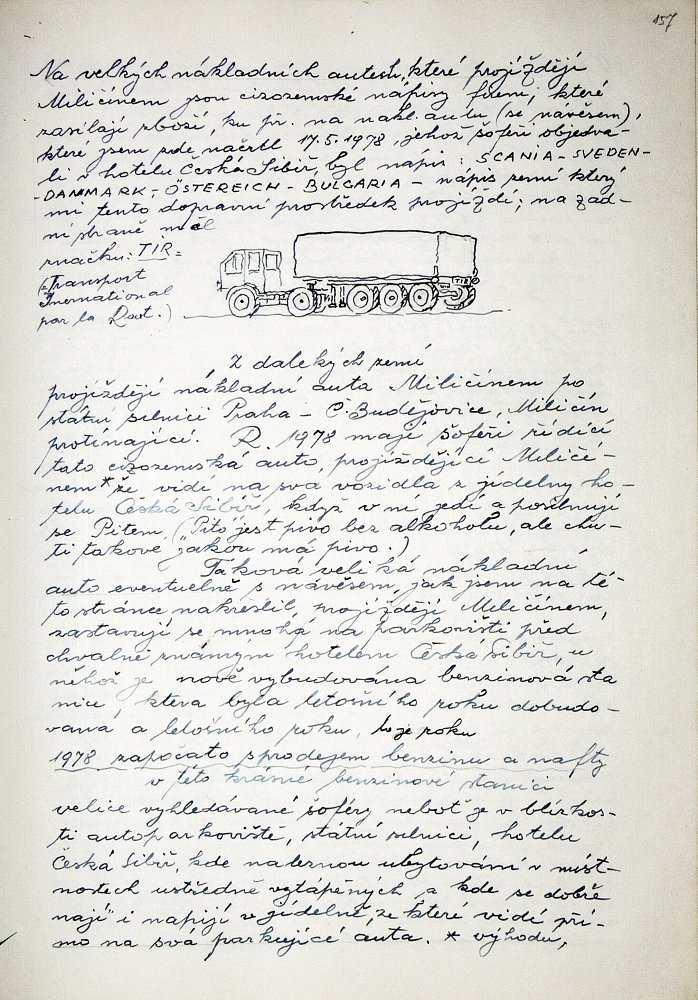 157
Na velkých nákladních autech, které projíždějí
Miličínem jsou cizozemské nápisy firem, které
zasílají zboží, ku př. na nákl. autu (se návěsem),
které jsem zde načrtl 17.5.1978, jehož šoféři objedva-
li v hotelu Česká Sibiř, byl nápis: SCANIA-SVEDEN-
-DANMARK-ÖSTEREICH-BULGARIA - nápis zemí který
mi tento dopravní prostředek projíždí; na zad-
ní straně měl
značku: TIR=
(=Transport
International
par la Rout.)
TIR
Z dalekých zemí
projíždějí nákladní auta Miličínem po
státní silnici Praha - Č. Budějovice, Miličín
protínající. R. 1978 mají šoféři řídící
tato cizozemská auta, projíždějící Miličí-
nem* že vidí na svá vozidla z jídelny ho-
telu Česká Sibiř, když v ní jedí a posilnují
se Pitem. ("Pito" jest pivo bez alkoholu, ale chu-
ti takové jakou má pivo.)
Taková veliká nákladní
auta eventuelně s návěsem, jak jsem na té-
to stránce nakreslil, projíždějí Miličínem,
zastavují se mnohá na parkovišti před
chvalně známým hotelem Česká Sibiř, u
něhož je nově vybudována benzinová sta
nice, kteva byla letošního roku dobudo-
vaná, a letošního roku, to je roku
1978 započato s prodejem benzinu a nafty
v této krásné benzinové stanici
velice vyhledávané šoféry neboť je v blízkos-
ti autoparkoviště, státní silnici, hotelu
Česká Sibiř, kde naleznou ubytování v míst-
nostech ústředně vytápěných, a kde se dobře
nají i napijí v jídelně, ze které vidí pří-
mo na svá parkující auta. * výhodu,